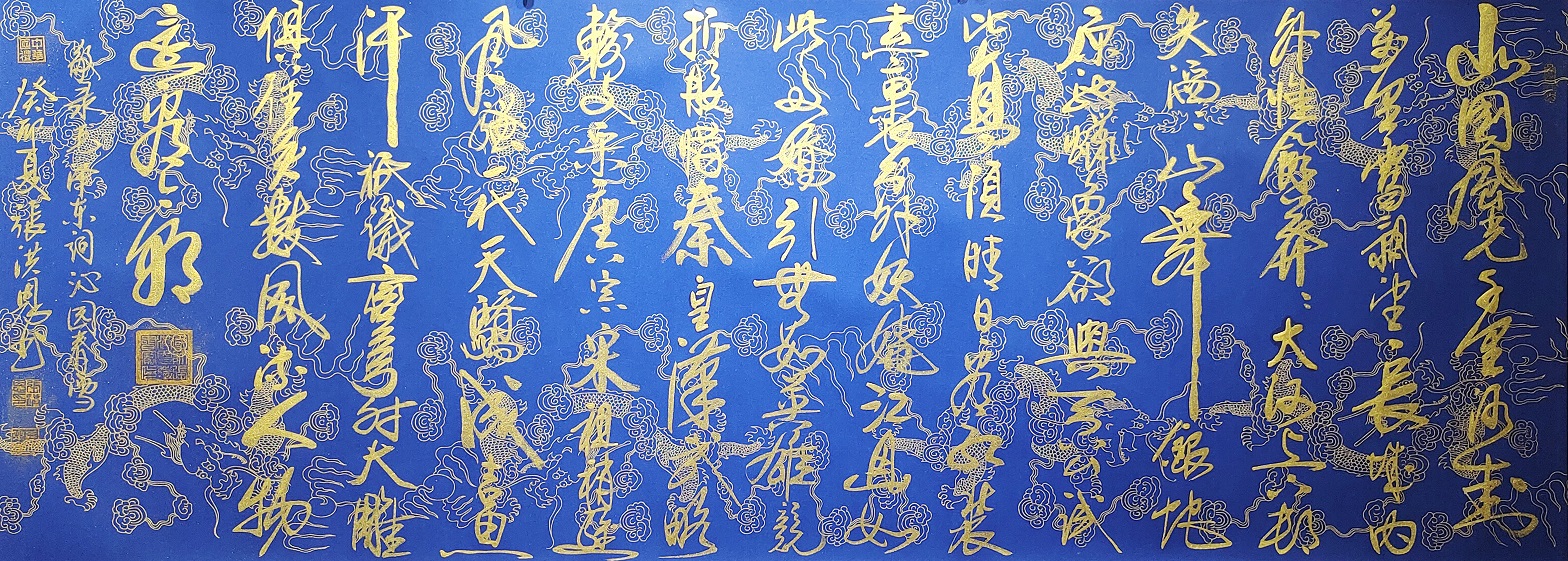 北國風光千里冰封
萬里雪飄望長城内
外惟餘莽々大河上下頓
失滔々山舞銀蛇
原馳蠟象欲與天公試
比高須晴日看紅裝
素裹分外妖嬈江山如
此多嬌引無數英雄競
折腰惜秦皇漢武略
輸文采唐宗宋祖稍遜
風騷一代天驕成吉思
汗祇識彎弓射大雕
俱往矣數風流人物
還看今朝
敬录毛泽东詞沁园春雪
癸卯夏張洪恩书